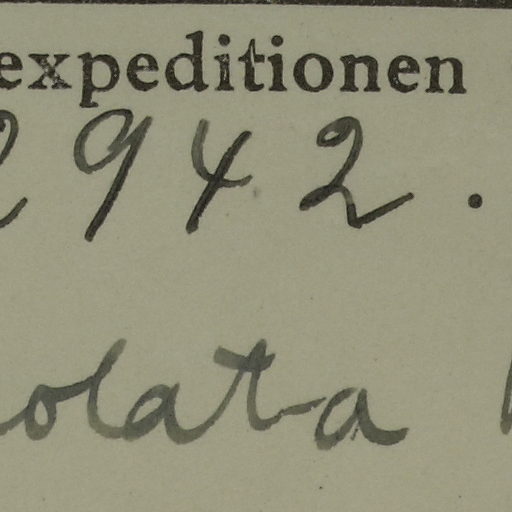 expeditionen
2942.
olata